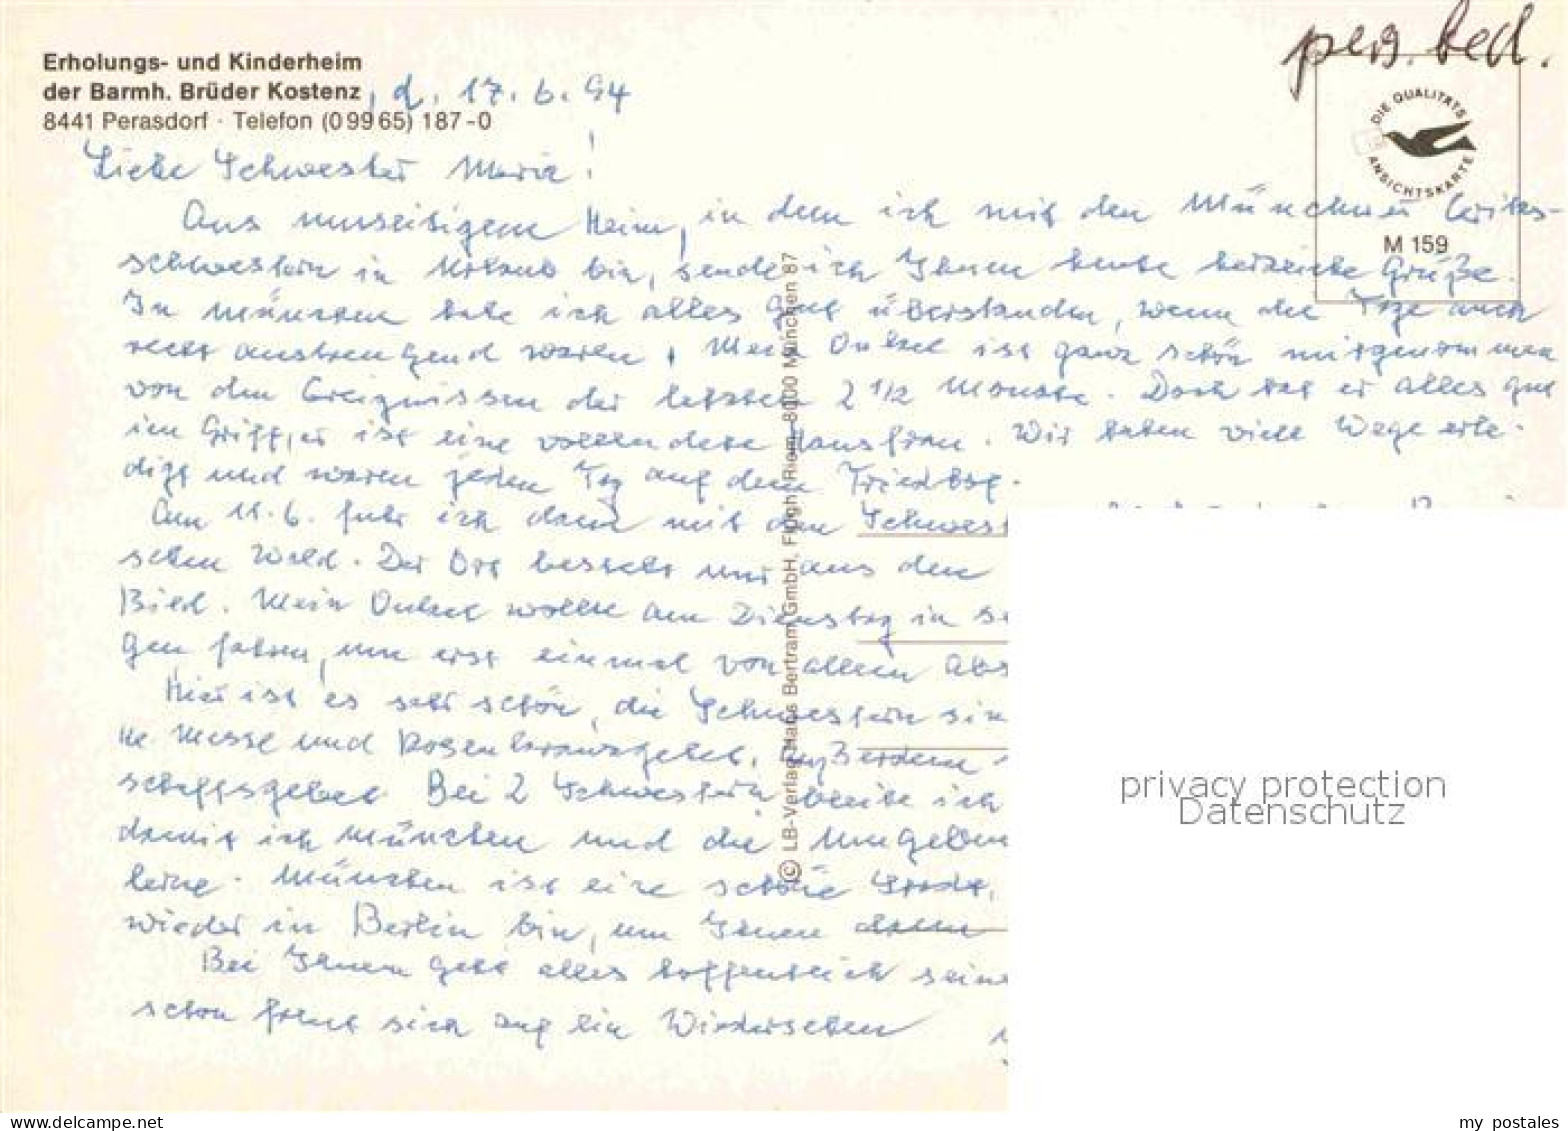 pers. bed.
Erholungs- und Kinderheim
der Barmh. Brüder Kostenz, d. 17.6.94
8441 Perasdorf · Telefon (09965) 187-0
DIE QUALITÄTS
ANSICHTSKARTE
M 159
Liebe Schwester Maria!
Aus unseitigem Heim, in dem ich mit den Münchner Caritas-
schwestern in Urlaub bin, sende ich Ihnen heute herzliche Grüße.
In München habe ich alles gut überstanden, wenn die Tage auch
recht anstrengend waren. Mein Onkel ist ganz schön mitgenommen
von den Ereignissen der letzten 2 1/2 Monate. Doch hat er alles gut
im Griff, er ist eine vollendete Hausfrau. Wir haben viele Wege erle-
digt und waren jeden Tag auf dem Friedhof.
Am 11.6. fuhr ich dann mit den Schwest
schen Wald. Der Ort besteht nur aus den
Bild. Mein Onkel wollte am Dienstag in se
gen fahren, um erst einmal von allem Abs
Hier ist es sehr schön, die Schwestern sin
ne Messe und Rosenkranzgebet, außerdem
schaftsgebet. Bei 2 Schwestern bleibe ich
damit ich München und die Umgebun
lerne. München ist eine schöne Stadt,
wieder in Berlin bin, um Ihnen dann
Bei Ihnen geht alles hoffentlich seine
schon freut sich auf ein Wiedersehen
(C) LB-Verlag Hans Bertram GmbH, Flugh. Riem, 8000 München 87
privacy protection
Datenschutz
my postales